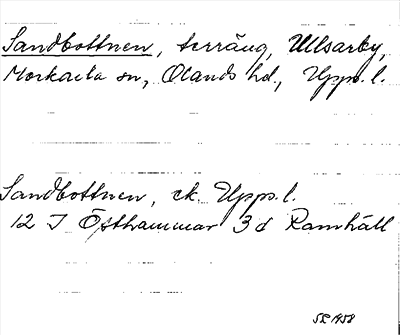 Sandbottnen, terräng, Ullsarby,
Morkarla sn, Olands hd, Upps. l.
Sandbottnen, ek. Upps. l.
12 I Östhammar 3 d Ramhäll
SR 1958